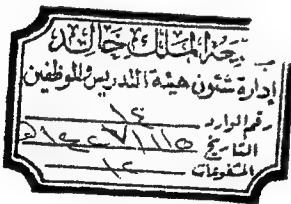 جامعة الملك خالد
إدارة شئون هيئة التدريس والموظفين
رقم الوارد ١٤
التاريخ
المشفوعات ١٢